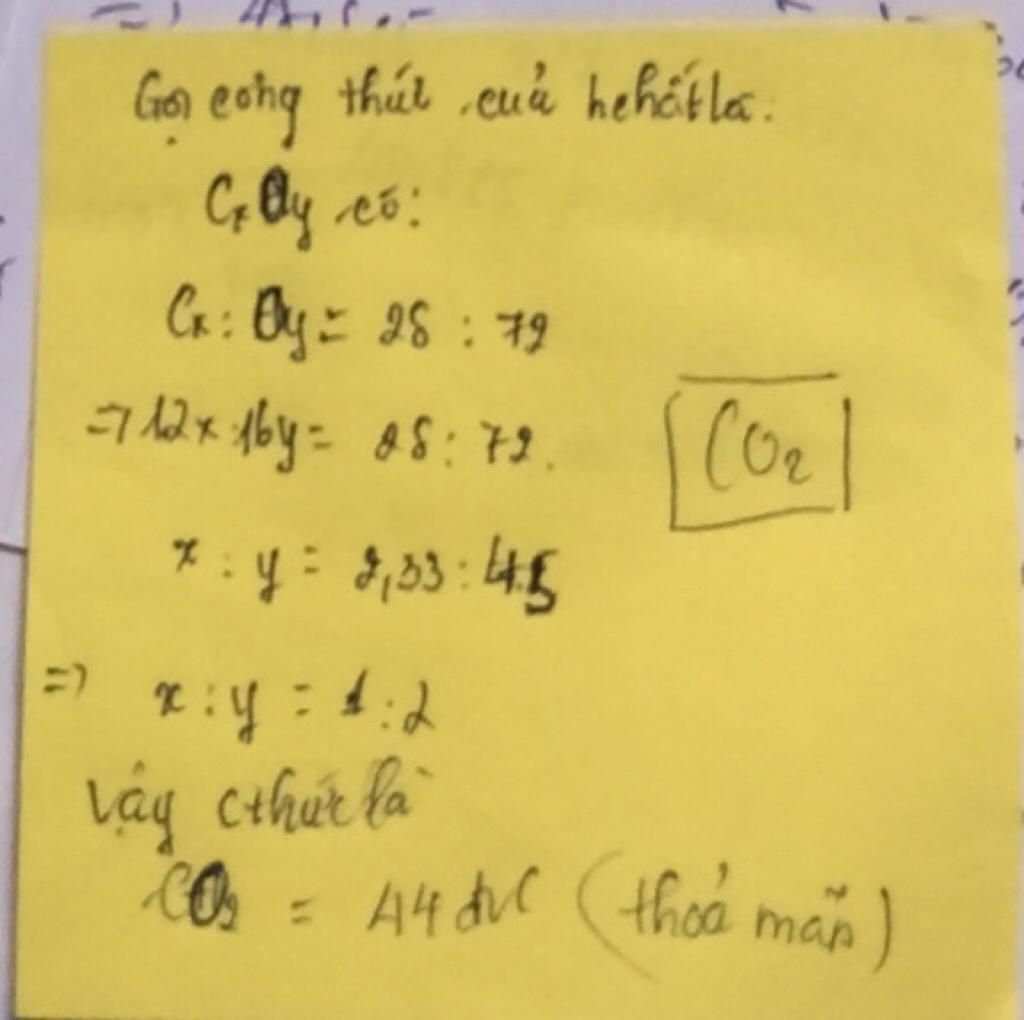 Gọi công thức của hchất là:
CxOy có:
Cx : Oy = 28 : 72
=> 12x : 16y = 28 : 72.
CO2
x : y = 2,33 : 4.5
=> x : y = 1 : 2
Vậy cthức là
CO2 = 44 đvC (thoả mãn)